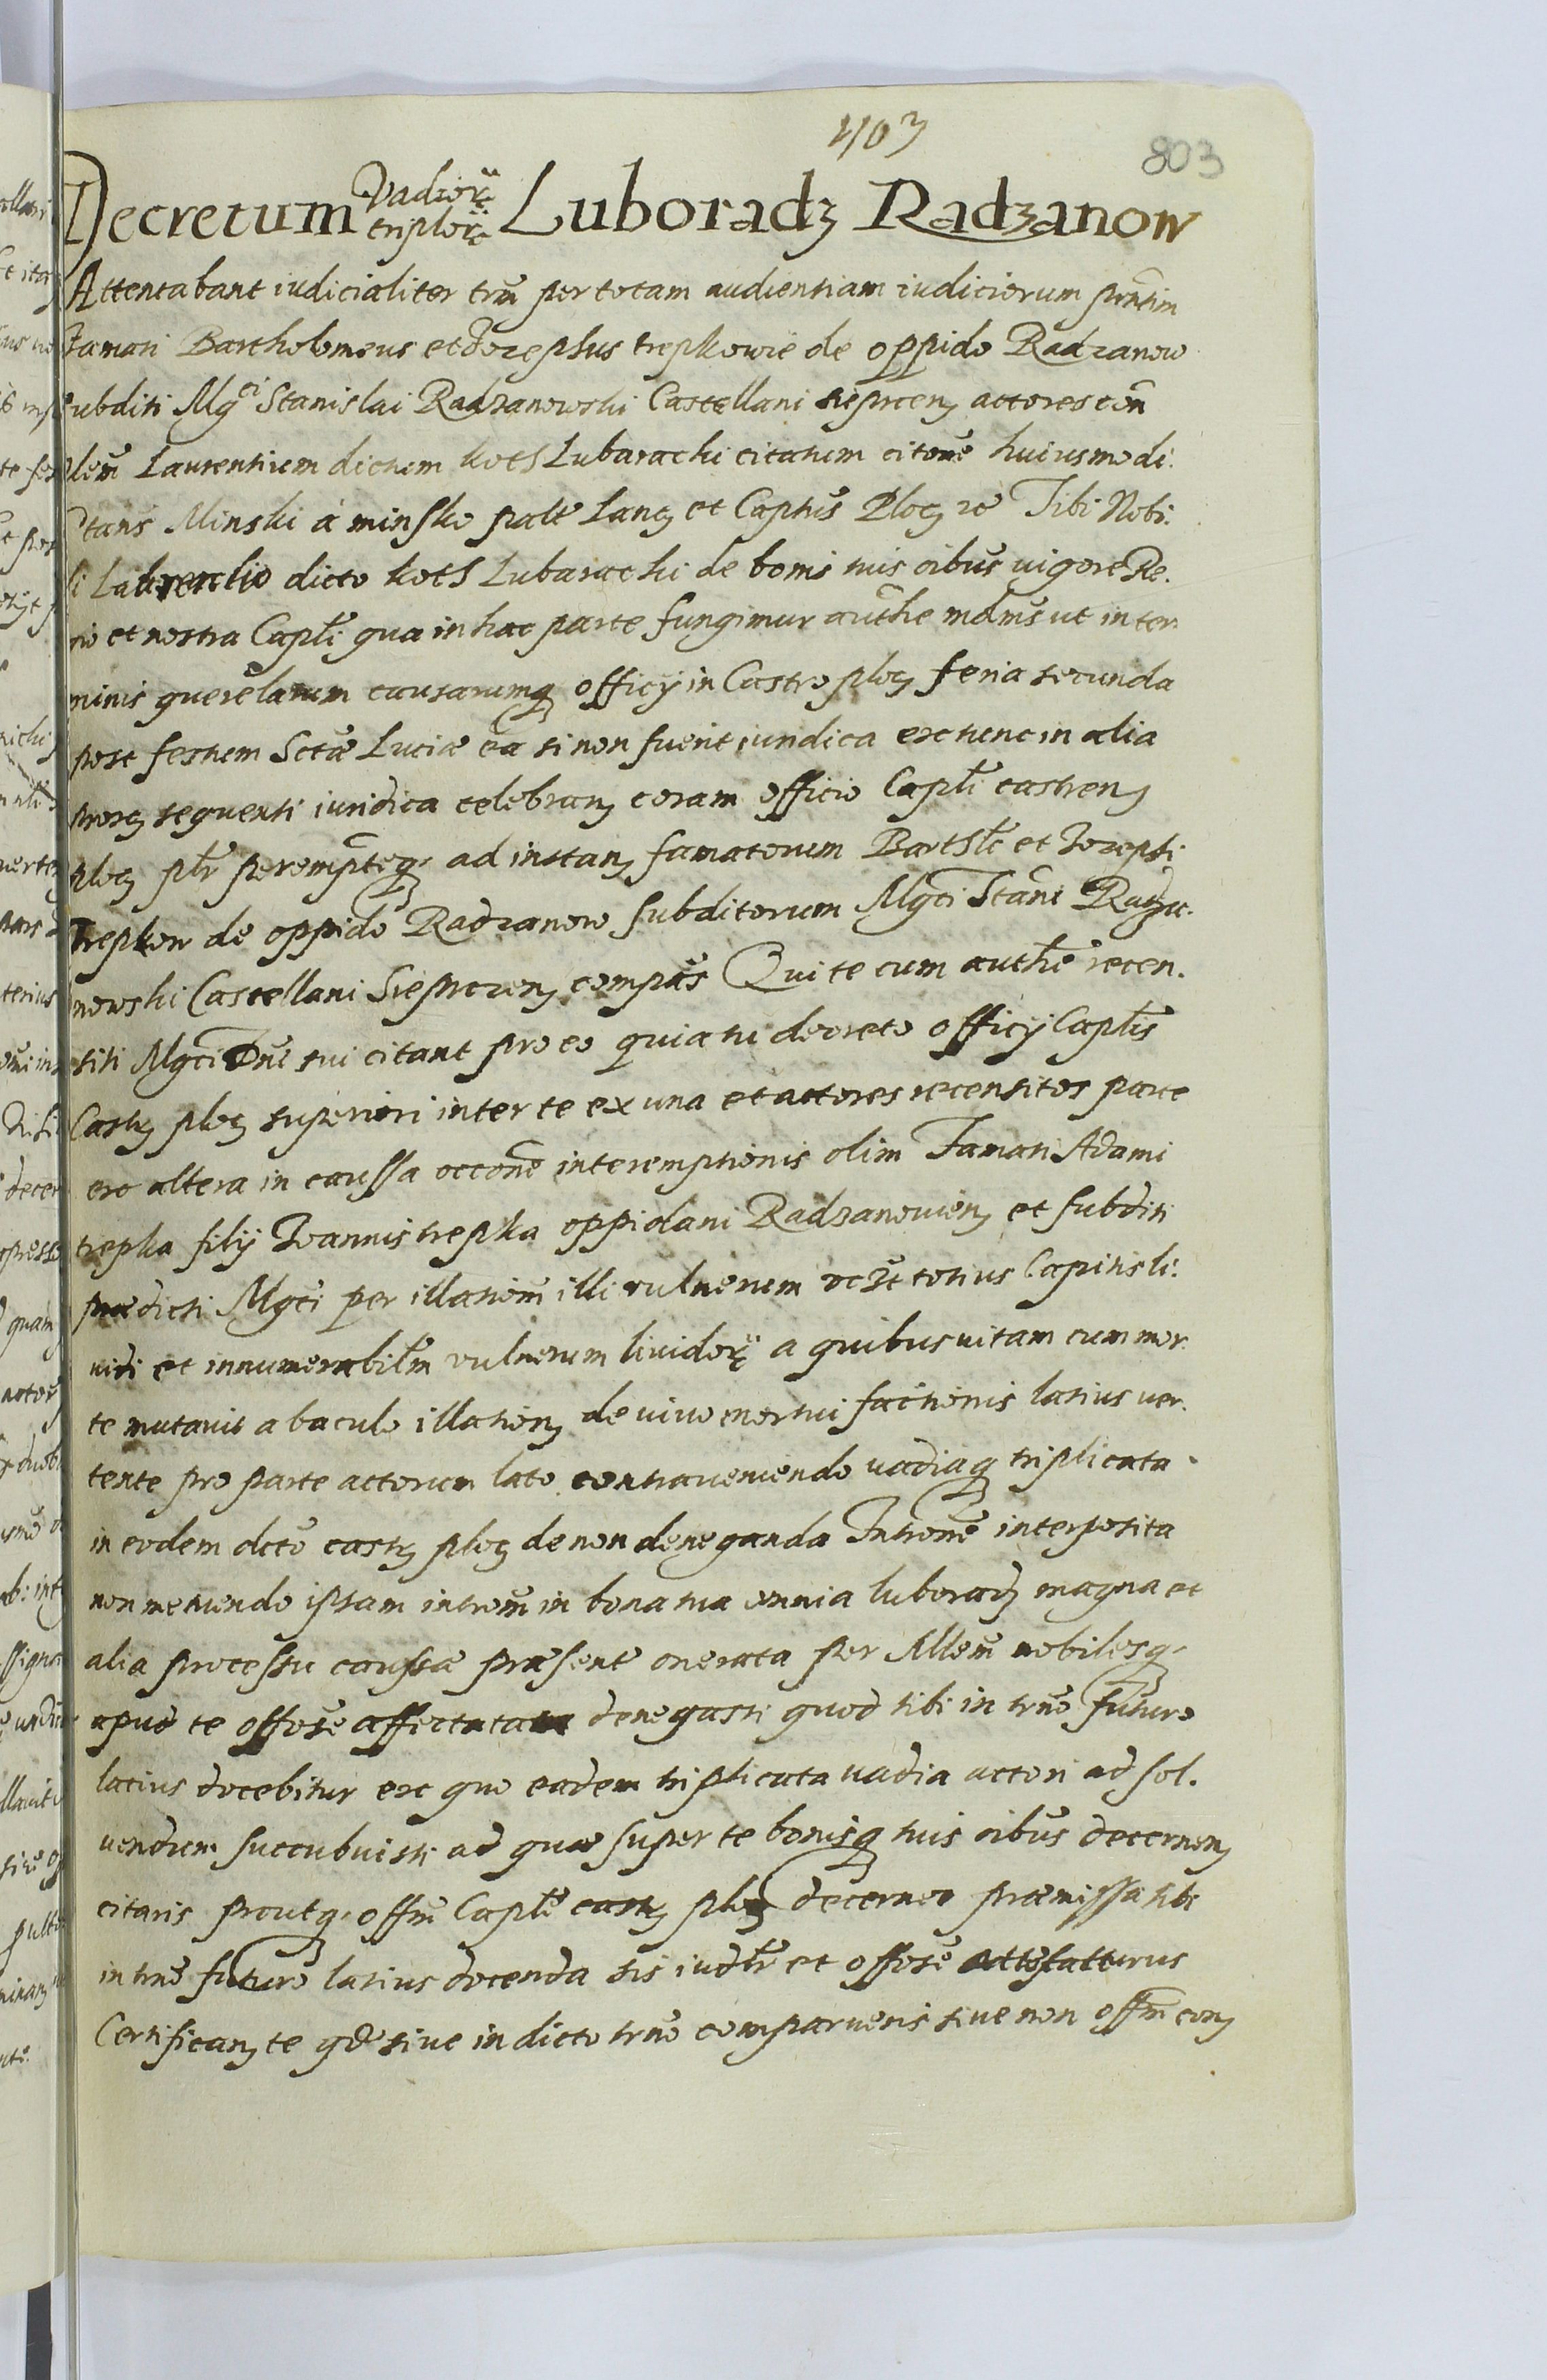 803
Decretum Vadiorũ triplorũ Luboradz Radzanow
Attentabant iudicialiter trm̃ per totam audientiam iudiciorum pñtim
Famati Bartholomeus et Jozephus trepkowie de oppido Radzanow
subditi Mgci Stanislai Radzanowski Castellani sieprcen actores con
Nlem̃ Laurentium dictum koth Lubarachi citatum citone huiusmodi.
Stans Minski a minsko palt Lancz et Captus Plocz rc Tibi Nobi.
li Laurentio dicto koth Lubarachi de bonis tuis oibus vigore Re.
gio et nostra Capli qua in hac parte fungimur authe mdms ut in ter
minis querelarum causarumq officij in Castro plocz feria secunda
post festum Sctæ Luciæ ea si non fuerit iuridica extunc in alia
prox sequenti iuridica celebran coram officio Capli castren
plocz plr perempteq ad instan famatorum Barthli et Jozephi
Trepkow de oppido Radzanow subditorum Mgci Stani Radza.
nowski Castellani Sieprczen compas Qui te cum authe recen.
siti Mgci Dni sui citant pro eo quia tu decreto officij Caplis
Castr plocz superiori inter te ex una et actores recensitos parte
ero altera in caussa occone interemptionis olim Famati Adami
trepka filij Joannis trepka oppidani Radzanovien et subditi
prædicti Mgci per illationem illi vulnerum totius Capitis li.
vidi et innumerabilm vulnerum lividorũ a quibus vitam cum mor.
te mutavit a baculo illation de vivo mortui factionis latius ver.
tente pro parte actorum lato contraveniendo vadiaq triplicata
in eodem dcto castr plocz de non deneganda Introme interposita
non metuendo ipsam intromm in bona tua omnia luboradz magna et
alia processu caussæ præsent onerata per Mllem nobilesq
apud te offose affectata denegasti quod tibi in trno futuro
latius docebitur ex quo eadem triplicata vadia actori ad sol.
vendum succubuisti ad quæ super te bonisq tuis oibus decernen
citaris proutq offm Caple castr plocz decerneo præmissa tibi
in trno futuro latius docenda sis iudlr et offose attsfatturus
Certifican te qd sive in dicto trno comparueris sive non offm con